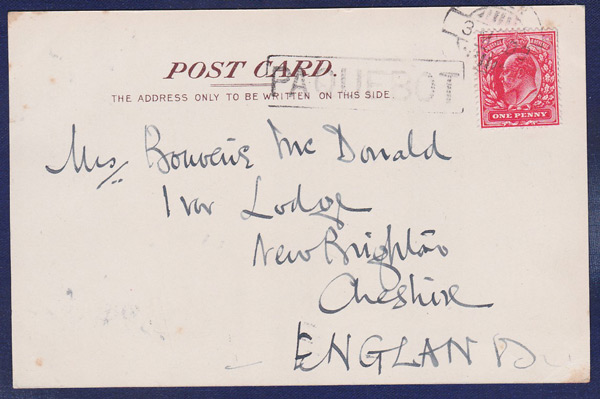 POST CARD.
PAQUEBOT
THE ADDRESS ONLY TO BE WRITTEN ON THIS SIDE.
ONE PENNY
Mrs Bouverie Mc Donald
Ivor Lodge
New Brighton
Cheshire
ENGLAND